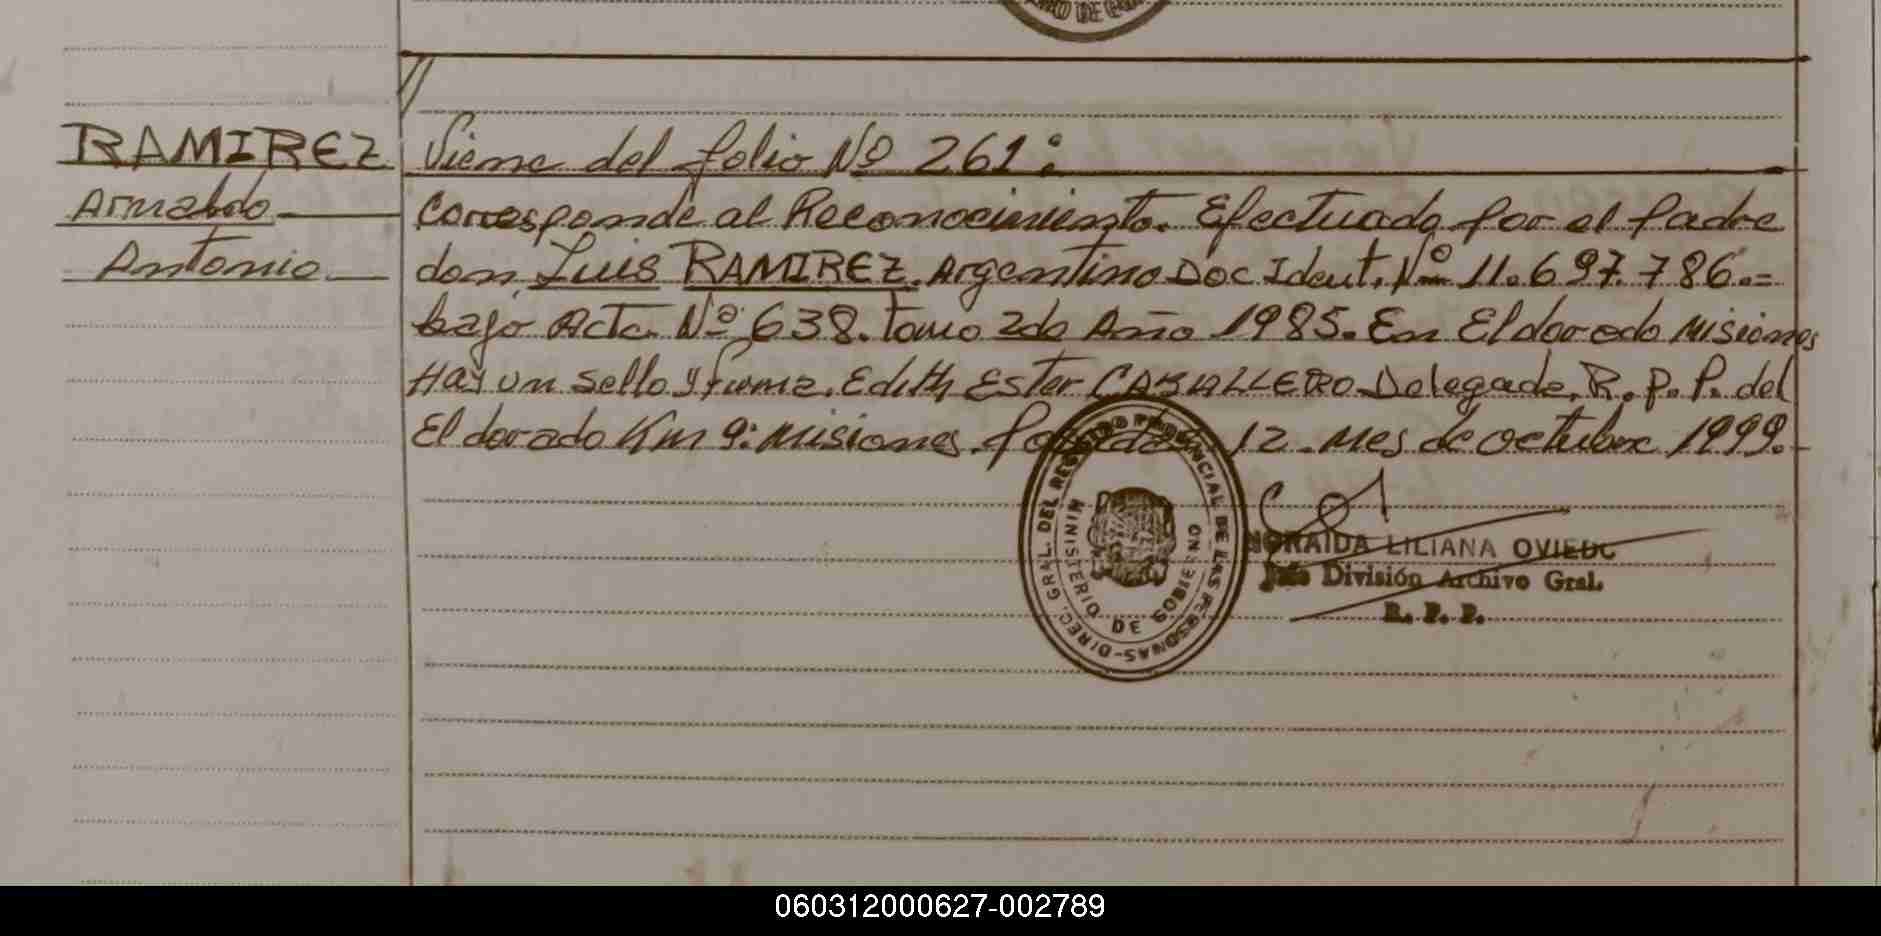 RAMIREZ
Arnaldo
Antonio
Viene del folio Nº 261:
Corresponde al Reconocimiento. Efectuado por el padre
don Luis RAMIREZ. Argentino Doc Ident. Nº 11.697.786.=
bajo Acta Nº 638. tomo 2do Año 1985. En Eldorado Misiones
Hay un sello y firma. Edith Ester CABALLERO Delegada. R. P. P. del
Eldorado Km 9: Misiones. Posadas 12. Mes de octubre 1999.-
DIREC. GRAL. DEL REGISTRO PROVINCIAL DE LAS PERSONAS-
MINISTERIO DE GOBIERNO
LILIANA OVIEDO
Jefe División Archivo Gral.
R. P. P.
060312000627-002789